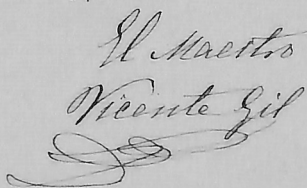 El Maestro
Vicente Gil